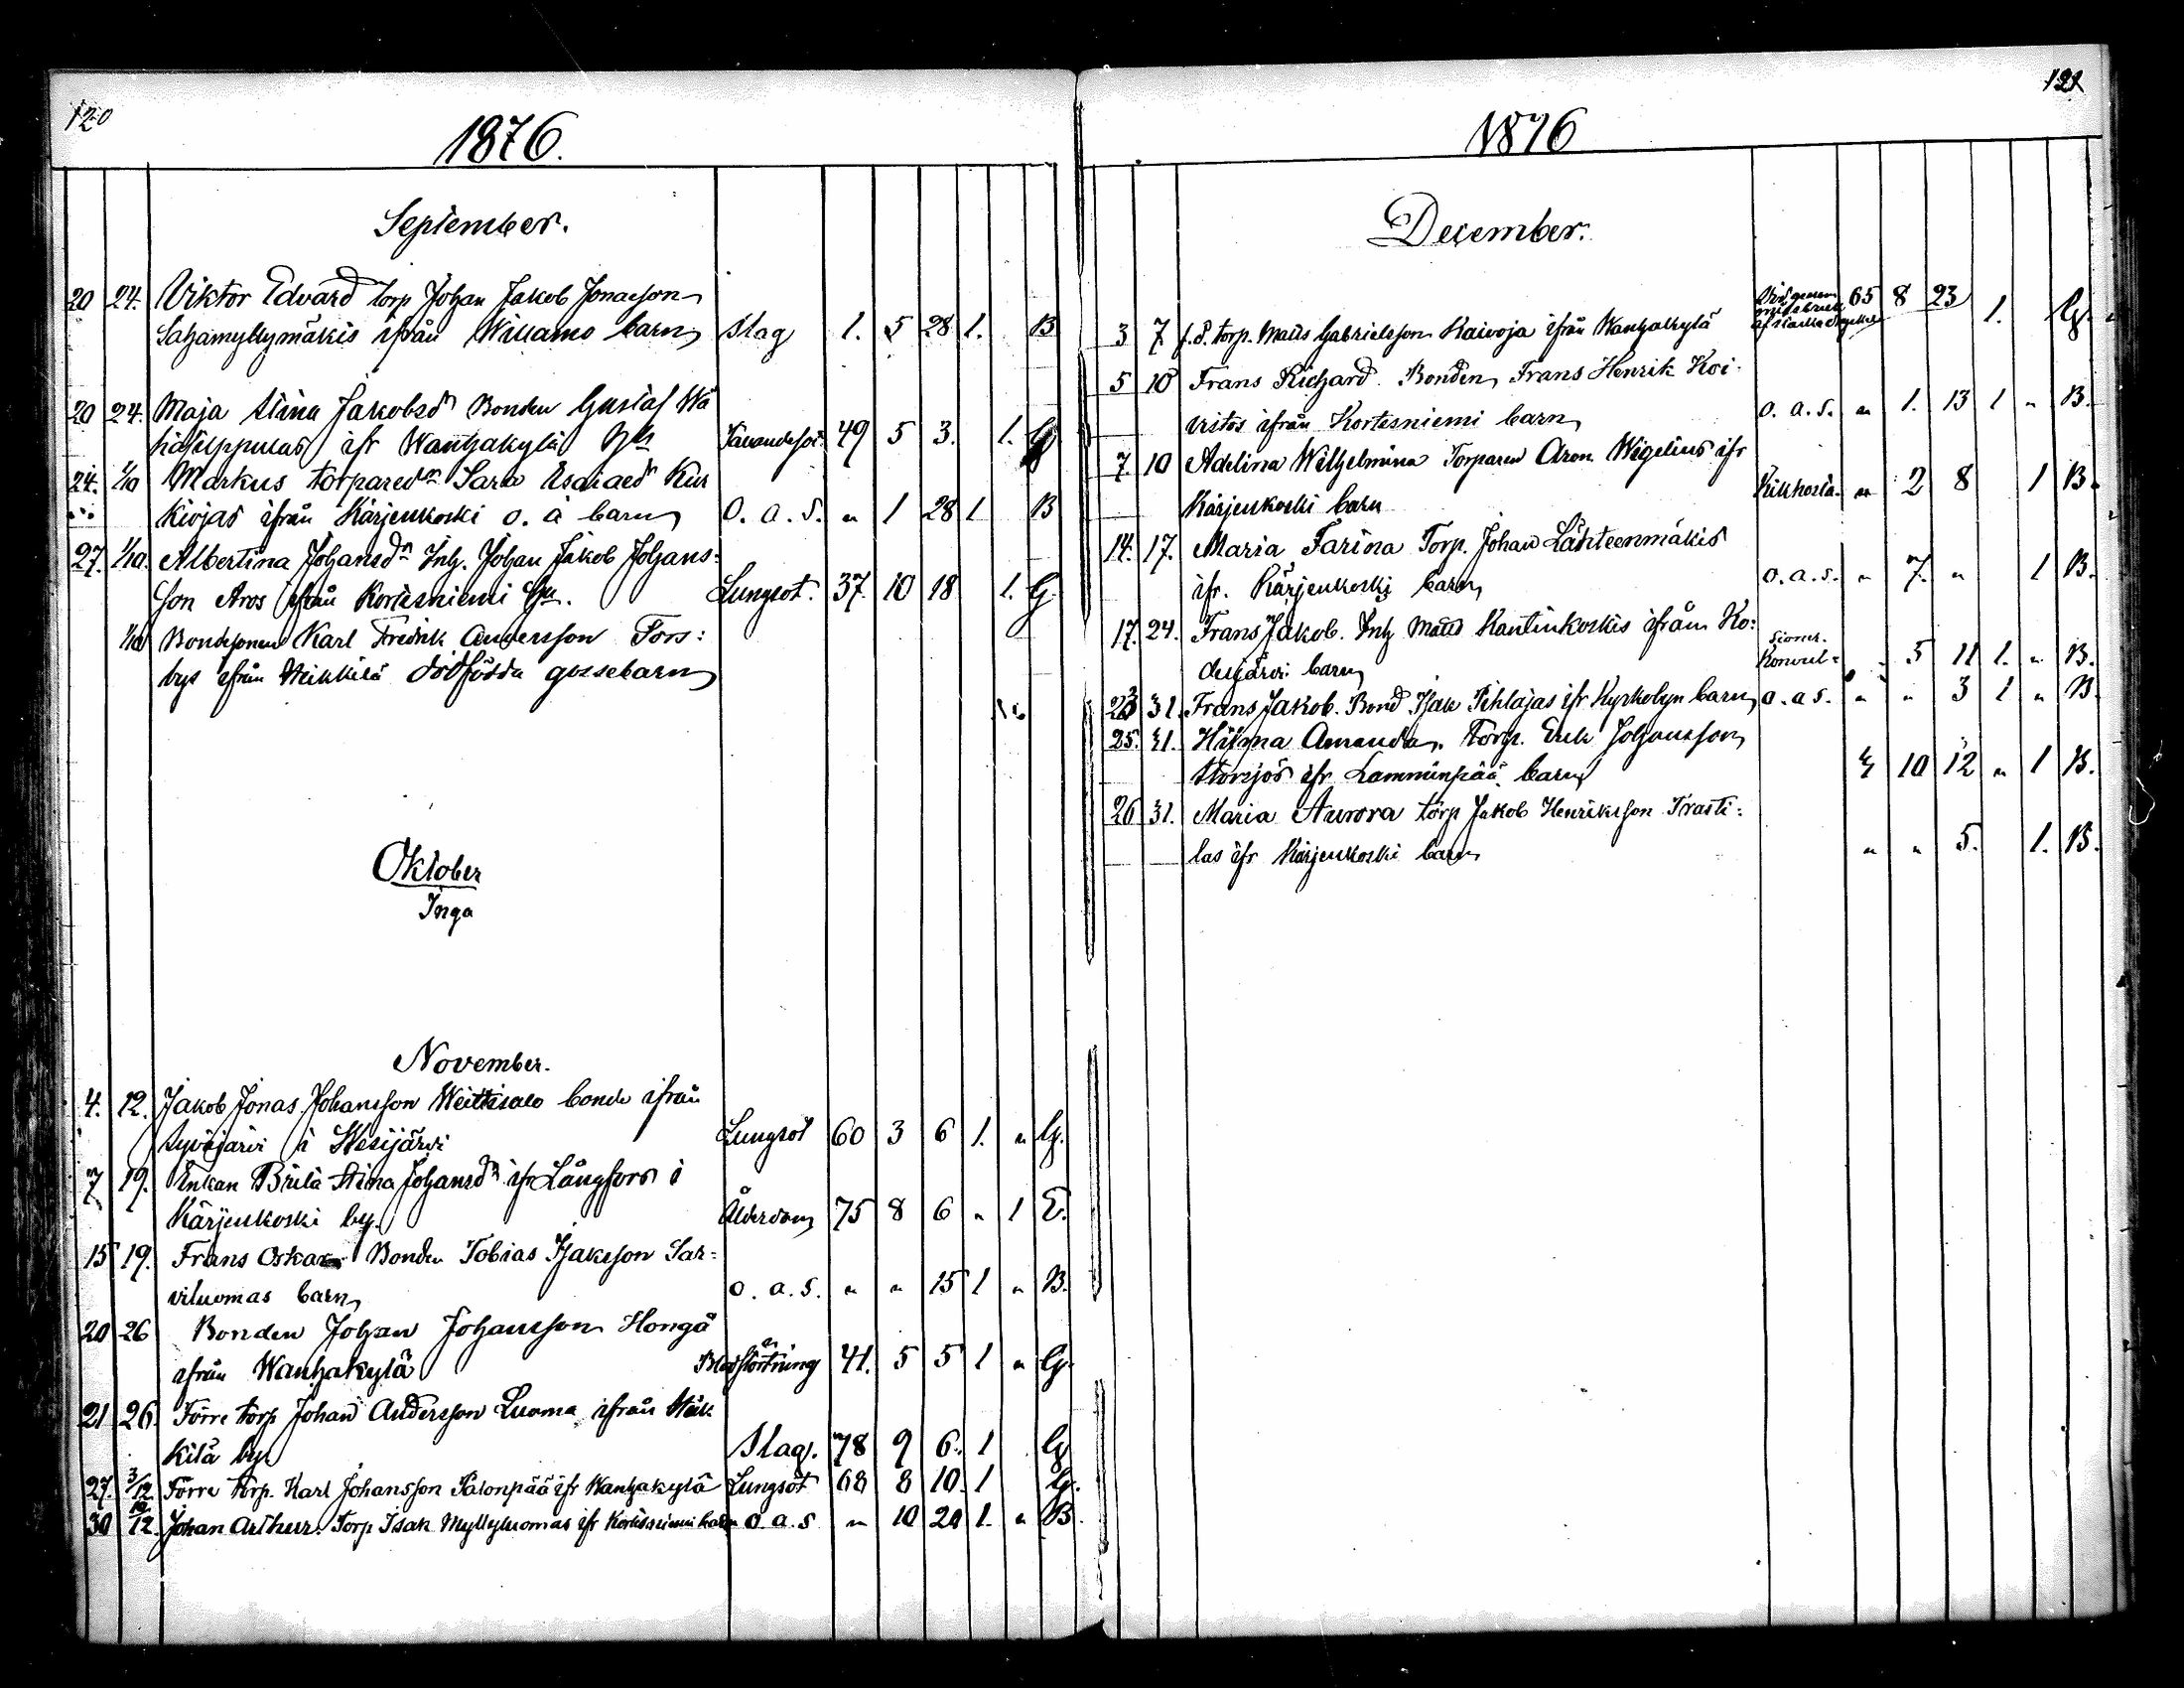 120
1876.
September.
20 24. Viktor Edvard torp Johan Jakob Jonasson
Sahamyllymäkis ifrån Willamo barn Slag 1. 5 28 1. B
20 24. Maja Stina Jakobsdr Bonden Gustaf Wä
häfilppulas ifr Wanhakylä Hu 49 5 3. 1. G
24. 1/10 Markus torparedr Sara Esaiaedr Kur
kiojas ifrån Kärjenkoski o. ä barn O. a. S. " 1 28 1 B
27. 1/10. Albertina Johansdr Inh. Johan Jakob Johans:
son Aros ifrån Kortesniemi Hu. Lungsot. 37. 10 18 1. G.
1/10 Bondesonen Karl Fredrik Andersson Fors:
bys ifrån Heikkilä dödfödda gossebarn
Oktober
Inga
November.
4. 12. Jakob Jonas Johansson Weittisalo bonde ifrån
Syväjärvi i Wesijärvi Lungsot 60 3 6 1. " G.
7 19. Enkan Brita Stina Johansdr ifr Långfors i
Kärjenkoski by. Ålderdom 75 8 6 " 1 E.
15 19. Frans Oskar Bonden Tobias Isaksson Sar=
viluomas barn o. a. s. " " 15 1 " B.
20 26 Bonden Johan Johansson Hongå
ifrån Wanhakylä Blodstörtning 41. 5 5 1 " G.
21 26. Förre torp Johan Andersson Luoma ifrån Heik
kilä by Slag. 78 9 6. 1 G
27. 3/12 Förre torp. Karl Johansson Salonpää ifr Wanhakylä Lungsot 68 8 10. 1 G.
30 10/12. Johan Arthur. Torp Isak Myllyluomas ifr Kortesniemi barn o. a. s " 10 20 1. " B.
121
1876
December.
3 7 f.d. torp. Matts Gabrielsson Kaivoja ifrån Wanhakylä 65 8 23 1. G.
5 10 Frans Richard. Bonden Frans Henrik Koi-
vistos ifrån Kortesniemi barn o. a. s. " 1. 13 1 " B.
7 10 Adelina Wilhelmina Torparen Aron Wigelius ifr
Kärjenkoski barn Kikhosta. " 2 8 1 B.
14. 17. Maria Farina Torp. Johan Lähteenmäkis
ifr. Kärjenkoski barn o. a. s. " 7. " 1 B.
17. 24. Frans Jakob. Inh Matts Kantinkoskis ifrån Ko:
desjärvi barn Konvul= sioner. " 5 11 1. " B.
23 31. Frans Jakob. Bond Isak Pihlajas ifr Kyrkobyn barn o. a s. " " 3 1 " B.
25. 31. Hilma Amanda. Torp. Erik Johansson
Storsjös ifr Lamminpää barn 10 12 " 1 B.
26 31. Maria Aurora torp Jakob Henriksson Trasti=
las ifr Kärjenkoski barn " " 5. 1. B.